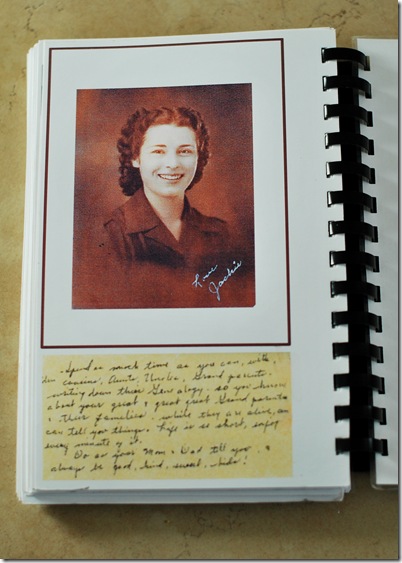 Love
Jackie
Spend as much time as you can, with
cousins, Aunts, Uncles, Grand parents.
writing down their Genology. so you know
about your great & great great Grand parents
& their families, while they are alive, an
can tell you things. Life is so short, enjoy
every minute of it.
Do as your Mom & Dad tell you, &
always be good, kind, sweet, kids!